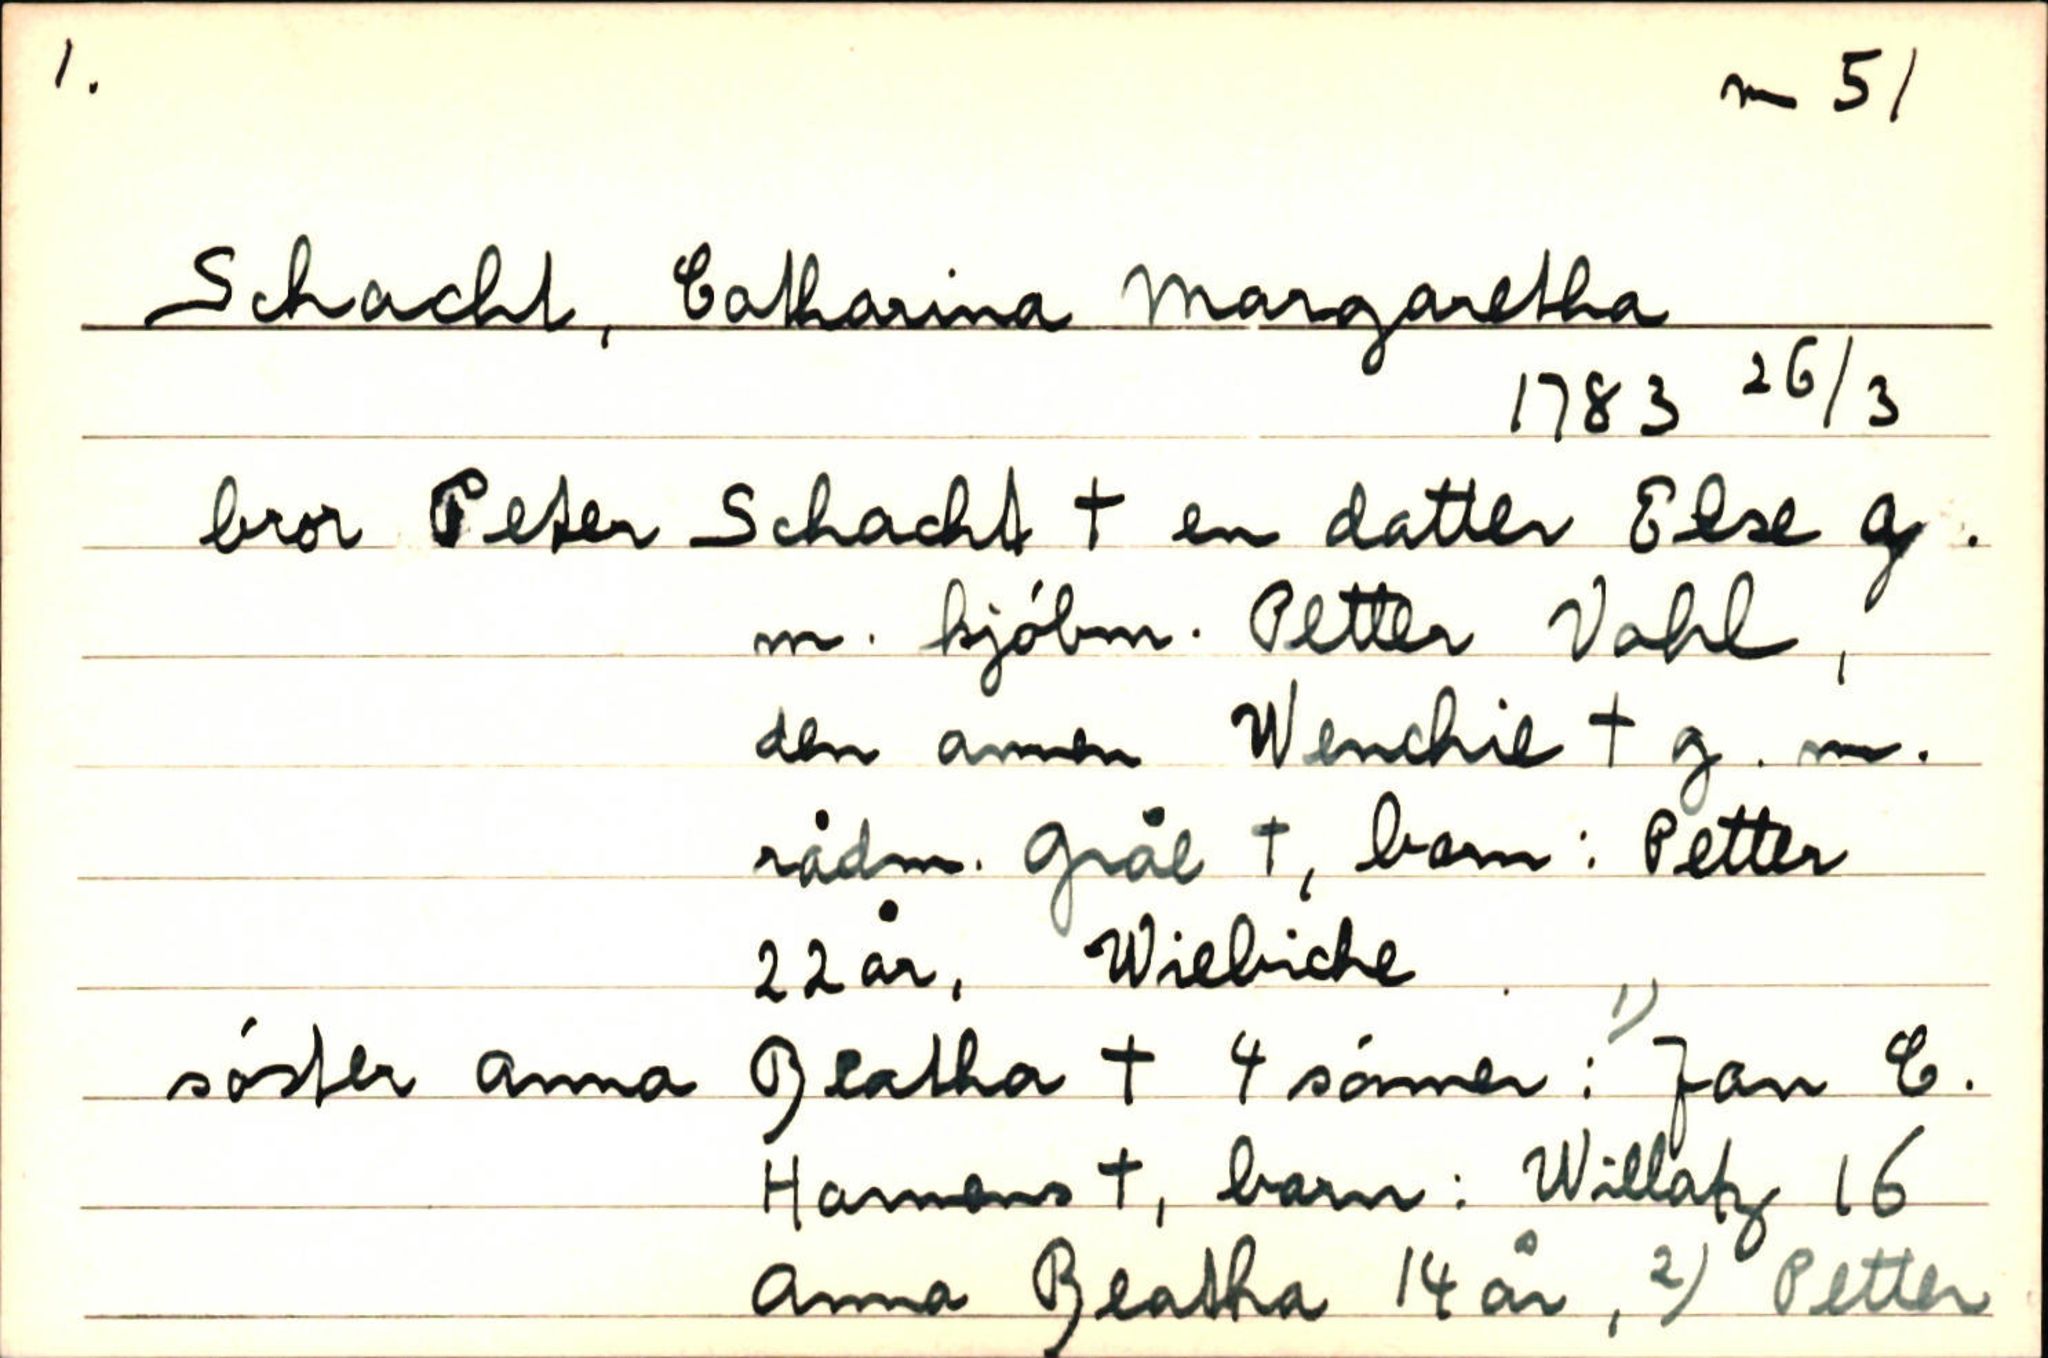 1.
m 51
Schacht, Catharina Margaretha
1783 26/3
bror Peter Schacht † en datter Else g.
m. kjóbm. Petter Vahl,
den annen Wenchie † g. m.
rådm. Gråe †, barn: Petter
22 år, Wiebiche
sóster Anna Beatha † 4 sónner: 1) Jan C.
Hamens †, barn: Willatz 16
Anna Beatha 14 år, 2) Petter